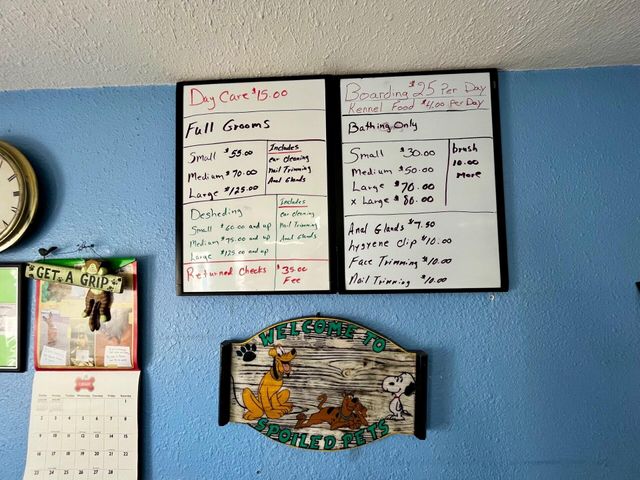 Day Care $15.00
Full Grooms
Small $55.00
Medium $70.00
Large $125.00
Includes
ear cleaning
nail Trimming
Anal Glands
Desheding
Small $60.00 and up
Medium $75.00 and up
Large $125.00 and up
Includes
ear cleaning
Nail Trimming
Anal Glands
Returned Checks $35.00
Fee
Boarding $25 Per Day
Kennel Food $4.00 per Day
Bathing Only
Small $30.00
Medium $50.00
Large $70.00
x Large $80.00
brush
10.00
more
Anal Glands $7.50
hygyene clip $10.00
Face Trimming $10.00
Nail Trimming $10.00
GET A GRIP
WELCOME TO
SPOILED PETS
2 3 4 5 6 7 8
9 10 11 12 13 14 15
16 17 18 19 20 21 22
23 24 25 26 27 28